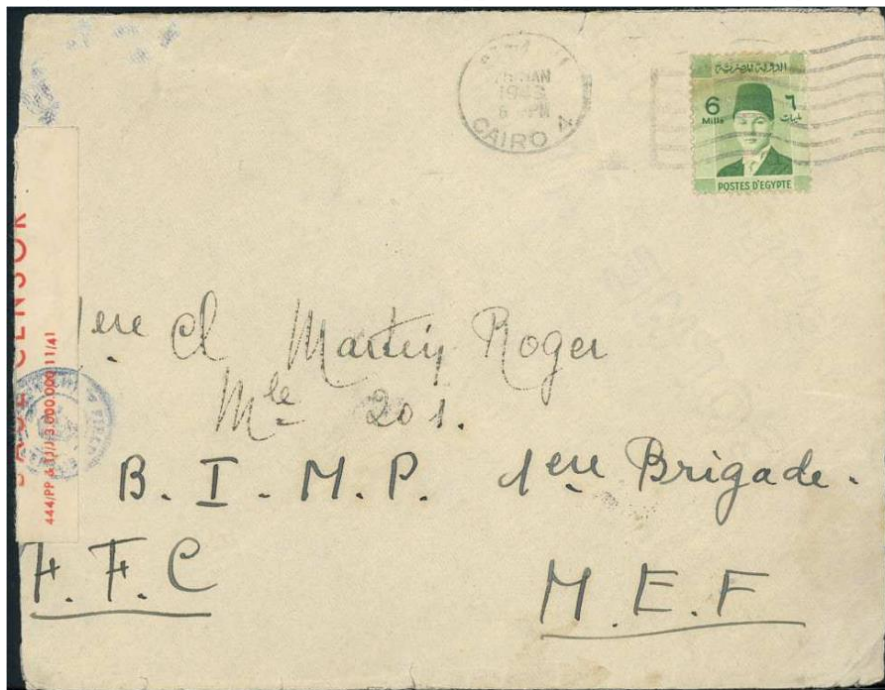 JAN
1943
PM
CAIRO
الدولة المصرية
6
Mills
٦
مليمات
POSTES D'EGYPTE
CENSOR
3.000.000 11/41
1ere Cl Martin Roger
Mle 201.
B. I. M. P. 1ere Brigade.
F. F. C
M. E. F